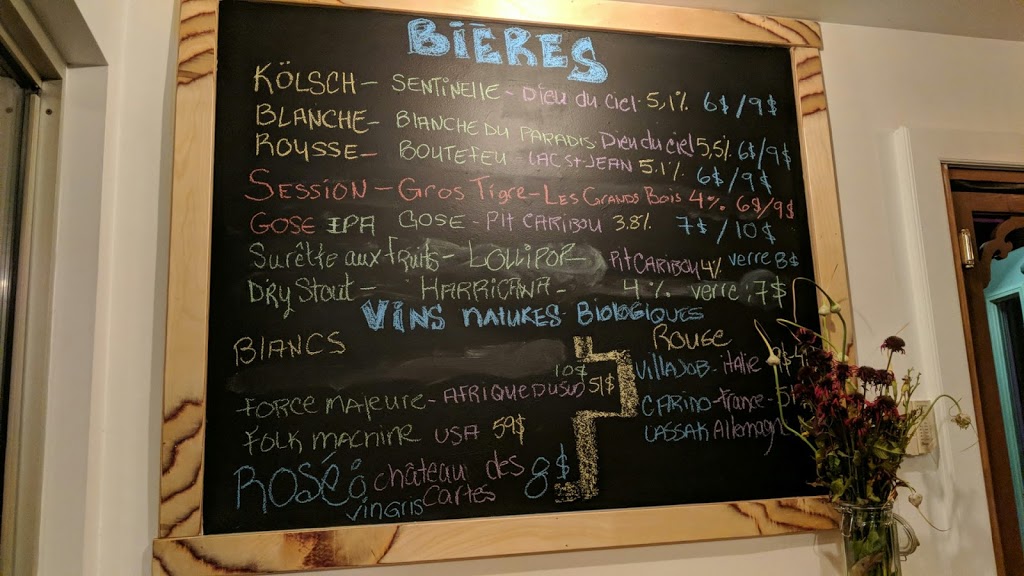 BIÈRES
KÖLSCH - SENTINELLE - DIEU DU CIEL 5,1% 6$/9$
BLANCHE - BLANCHE DU PARADIS DIEU DU CIEL 5,5% 6$/9$
ROUSSE - BOUTEFEU LAC ST-JEAN 5.1% 6$/9$
SESSION - GROS TIGRE - LES GRANDS BOIS 4% 6$/9$
GOSE IPA GOSE - PIT CARIBOU 3.8% 7$/10$
Surêtte aux fruits - LOLLIPOP - PIT CARIBOU 4% verre 8$
DRY Stout - HARRICANA - 4% verre: 7$
VINS NATURES BIOLOGIQUES
BLANCS
10$
FORCE MAJEURE - AFRIQUE DU SUD 51$
FOLK MACHINE USA 59$
ROSÉ château des
vin gris Cartes 8$
ROUGE
VILLA JOB - Italie
CARINO - France -
LASSAK Allemagne